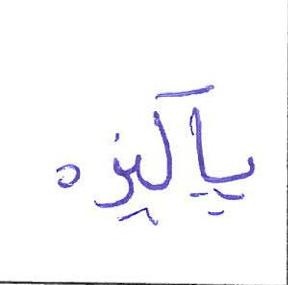 پاکیزه